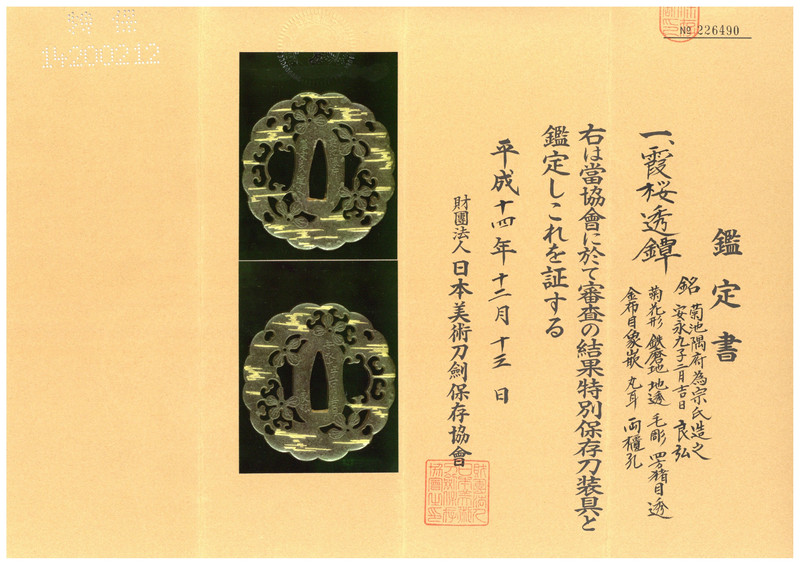 № 226490
鑑定書
一、霞桜透鐔
銘 菊池隅府為宗氏造之
安永九子二月吉日 良弘
菊花形 鉄磨地 地透 毛彫 四方猪目透
金布目象嵌 丸耳 両櫃孔
右は當協會に於て審査の結果特別保存刀装具と
鑑定しこれを証する
平成十四年十二月十三日
財團法人 日本美術刀劍保存協會
特保
14200212